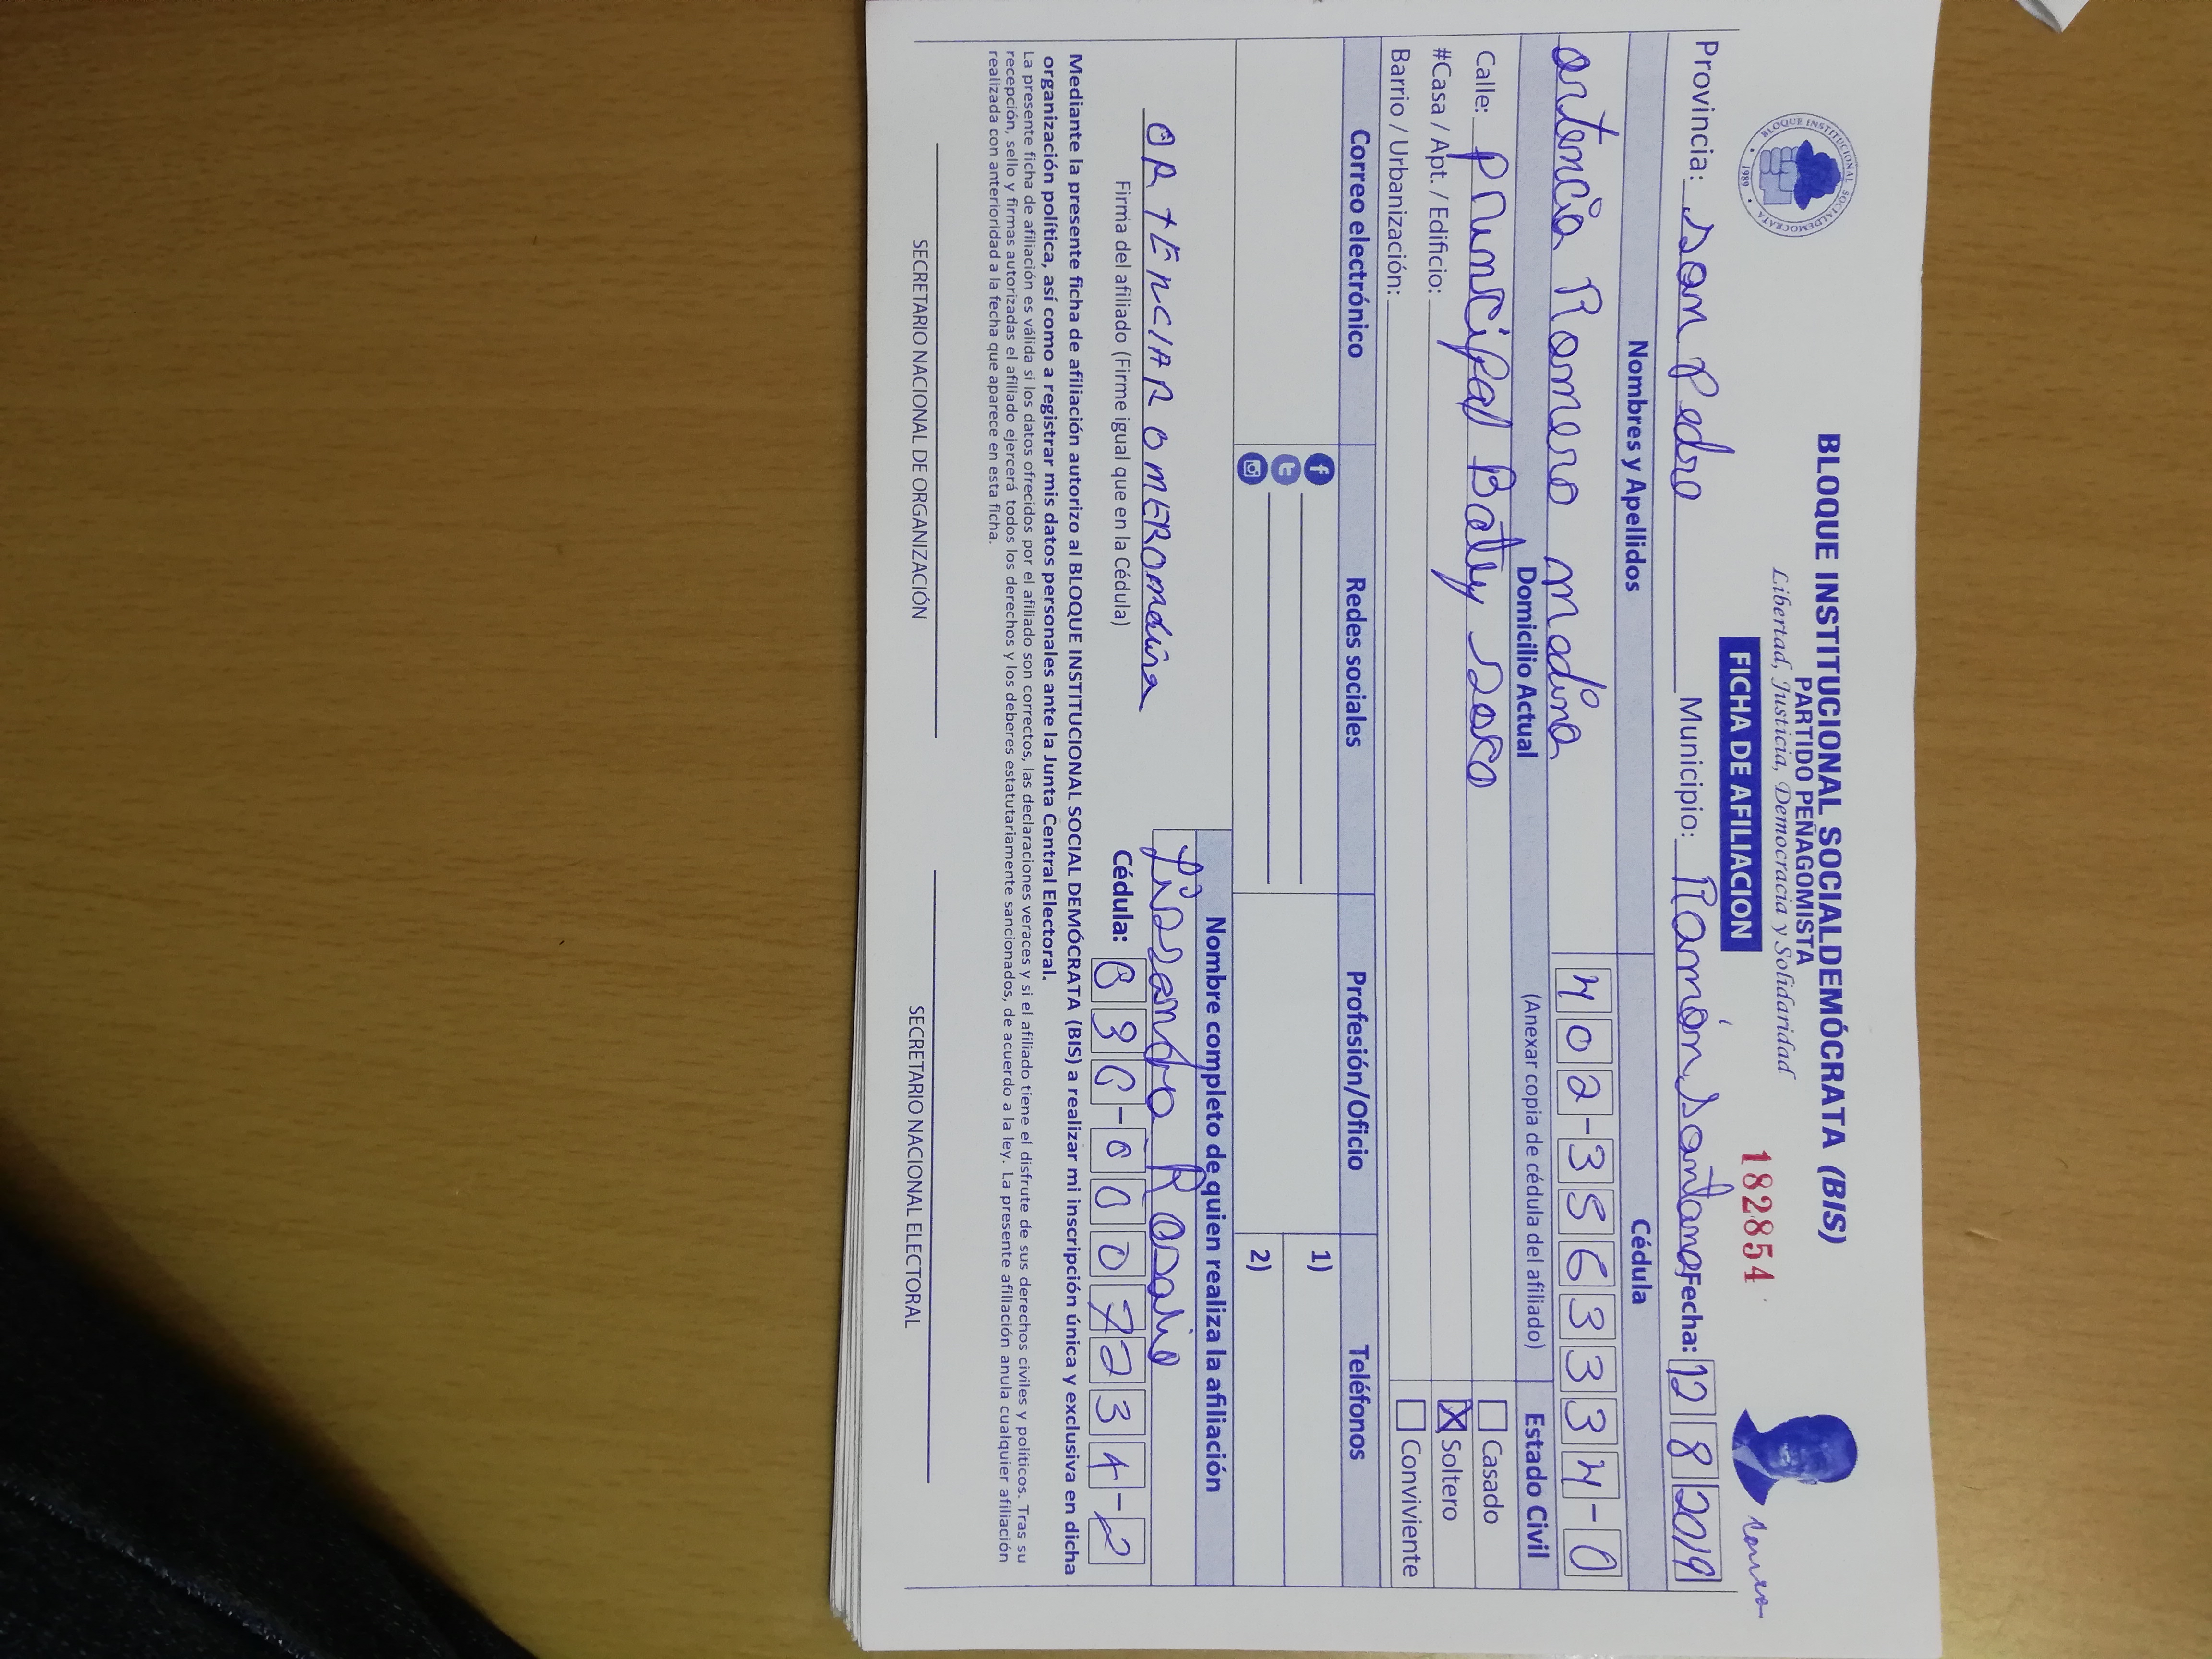 BLOQUE INSTITUCIONAL SOCIALDEMÓCRATA (BIS)
PARTIDO PEÑAGOMISTA
Libertad, Justicia, Democracia y Solidaridad
BLOQUE INSTITUCIONAL SOCIALDEMOCRATA • 1989 •
FICHA DE AFILIACION
182854
Provincia: San Pedro Municipio: Ramón Santana Fecha: 12 8 2019
Nombres y Apellidos Cédula
ortencia Romero Medina 402-3563334-0
Domicilio Actual (Anexar copia de cédula del afiliado) Estado Civil
Calle: Principal Batey Seco Casado
#Casa / Apt. / Edificio: X Soltero
Barrio / Urbanización: Conviviente
Correo electrónico Redes sociales Profesión/Oficio Teléfonos
1)
2)
Nombre completo de quien realiza la afiliación
ORtENCIA ROMERO Medina
Lissandro Rosario
Firma del afiliado (Firme igual que en la Cédula)
Cédula: 030-0007234-2
Mediante la presente ficha de afiliación autorizo al BLOQUE INSTITUCIONAL SOCIAL DEMÓCRATA (BIS) a realizar mi inscripción única y exclusiva en dicha
organización política, así como a registrar mis datos personales ante la Junta Central Electoral.
La presente ficha de afiliación es válida si los datos ofrecidos por el afiliado son correctos, las declaraciones veraces y si el afiliado tiene el disfrute de sus derechos civiles y políticos. Tras su
recepción, sello y firmas autorizadas el afiliado ejercerá todos los derechos y los deberes estatutariamente sancionados, de acuerdo a la ley. La presente afiliación anula cualquier afiliación
realizada con anterioridad a la fecha que aparece en esta ficha.
SECRETARIO NACIONAL DE ORGANIZACIÓN SECRETARIO NACIONAL ELECTORAL